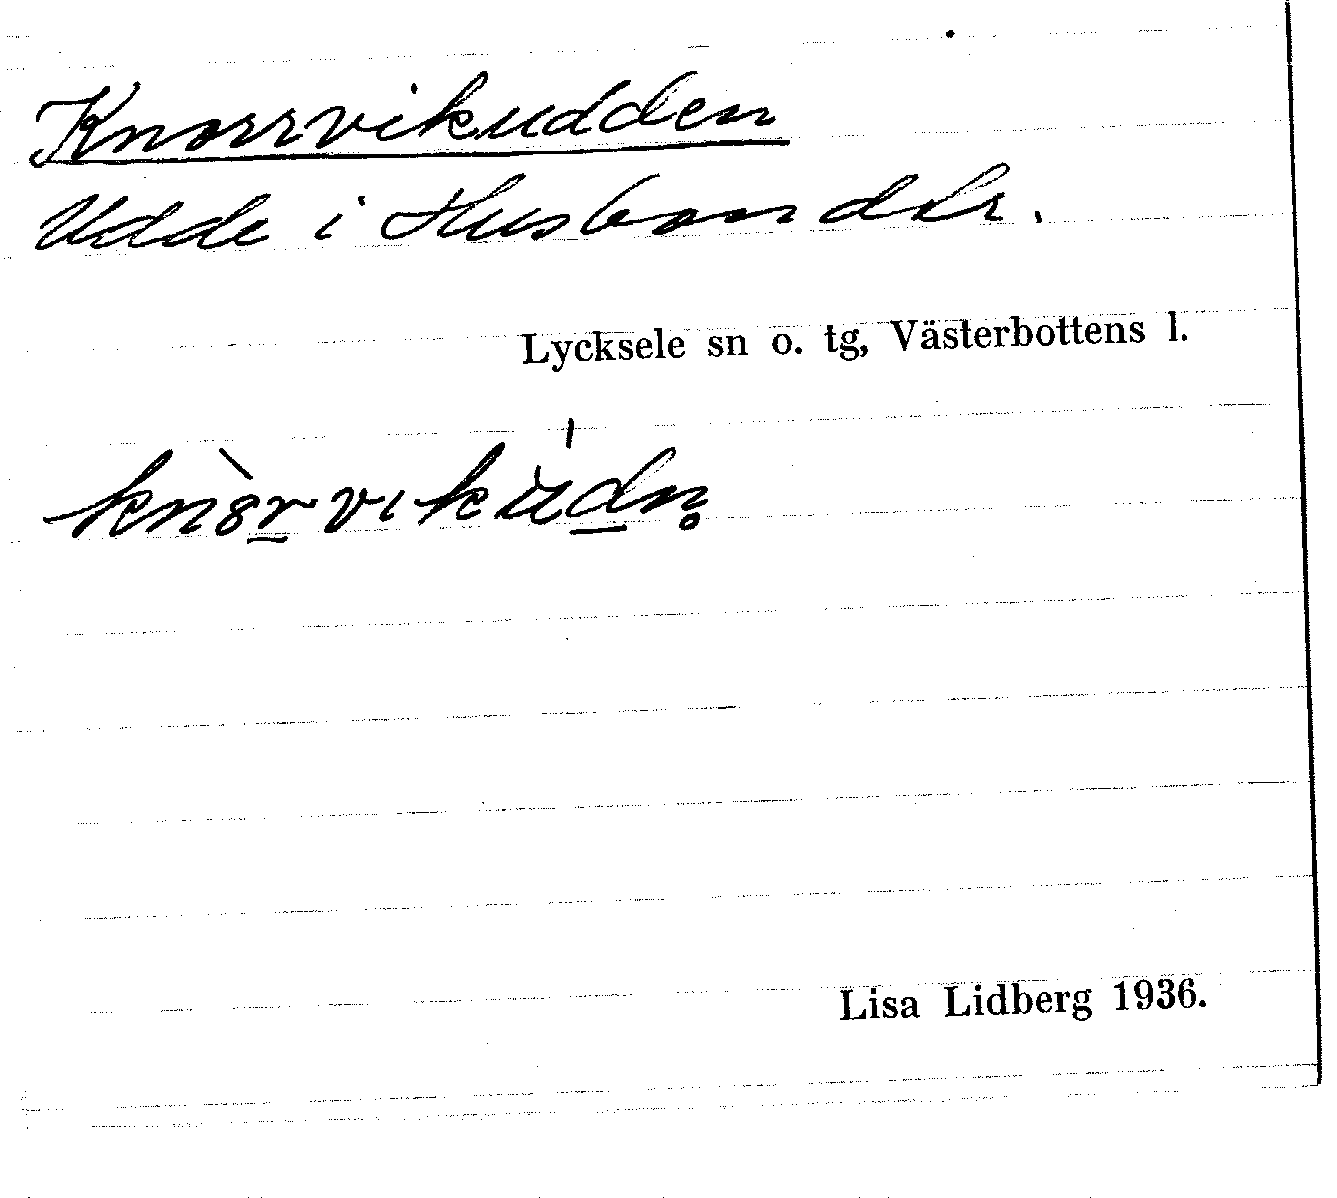 Knorrvikudden
Udde i Husbondsr.
Lycksele sn o. tg, Västerbottens l.
Lisa Lidberg 1936.